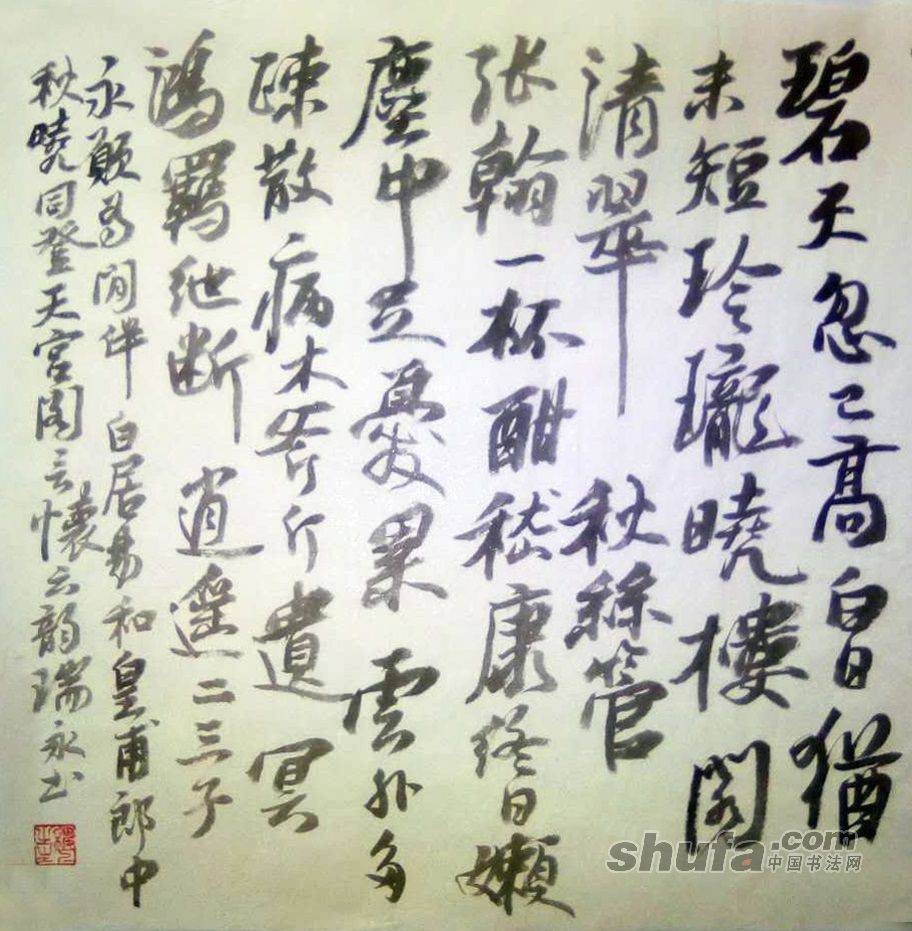 碧天忽已高白日猶
未短玲瓏曉樓閣
清翠秋絲管
張翰一杯酣嵇康終日嬾
塵中足憂累雲外多
疎散病木斧斤遺冥
鴻羈紲斷逍遥二三子
永願為閒伴白居易和皇甫郎中
秋曉同登天宮閣言懷云韵瑞永书
shufa.com
中国书法网